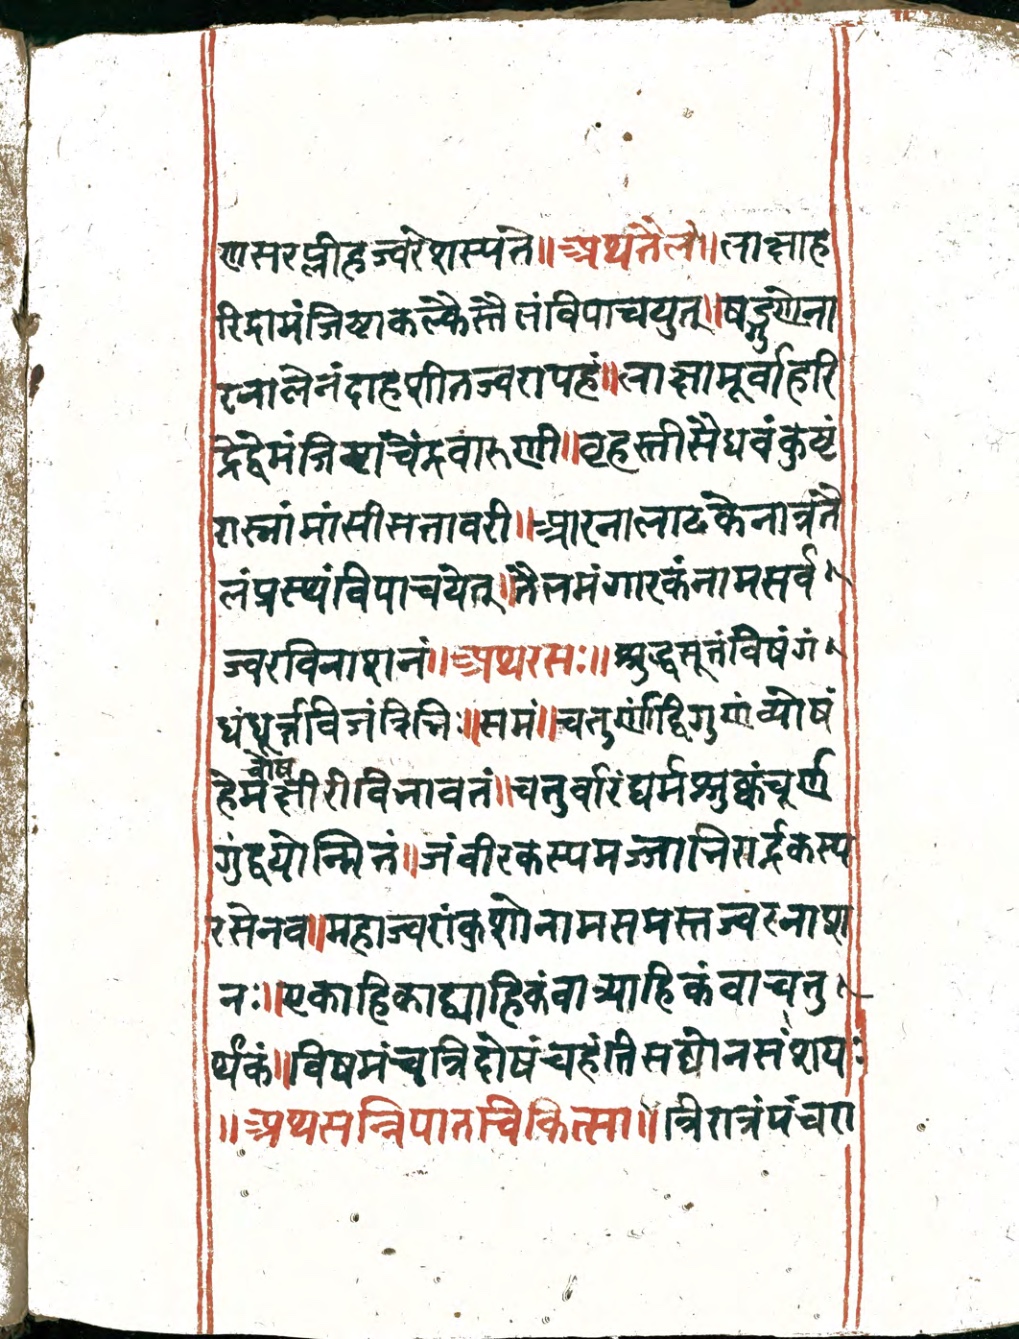 णसरप्लीहज्वरेशस्पते॥अथतैलं॥लाक्षाह
रिदामंजिष्टाकल्कैस्तैलंविपाचयुत्॥षड्गुणेना
रनालेनंदाहशीतज्वरापहं॥लाक्षामूर्वाहरि
द्रेद्वेमंजिष्टांचैंद्रवारुणी॥वृहस्तीसैधवंकुष्टं
रास्नांमांसीसतावरी॥आरनालाढकेनात्रंतै
लंप्रस्थंविपाचयेत्॥तैलमंगारकंनामसर्व
ज्वरविनाशनं॥अथरसः॥शुद्धसूतंविषंगं
धंधूर्त्तविजंत्रिभिः॥समं॥चतुर्णांद्विगुणंव्योषं
हेमक्षीरीविनावतं॥चतुर्वारंघर्मशुष्कंचूर्ण
गुंद्वयोन्मितं॥जंवीरकस्पमज्जाभिरार्द्रकस्प
रसेनव॥महाज्वरांकुशोनामसमस्तज्वरनाश
नः॥एकाहिकाद्व्याहिकंवात्र्याहिकंवाचतु
र्थकं॥विषमंचत्रिदोषंचहंतिसद्योनसंशयः
॥अथसन्निपातचिकित्सा॥त्रिरात्रंपंचरा